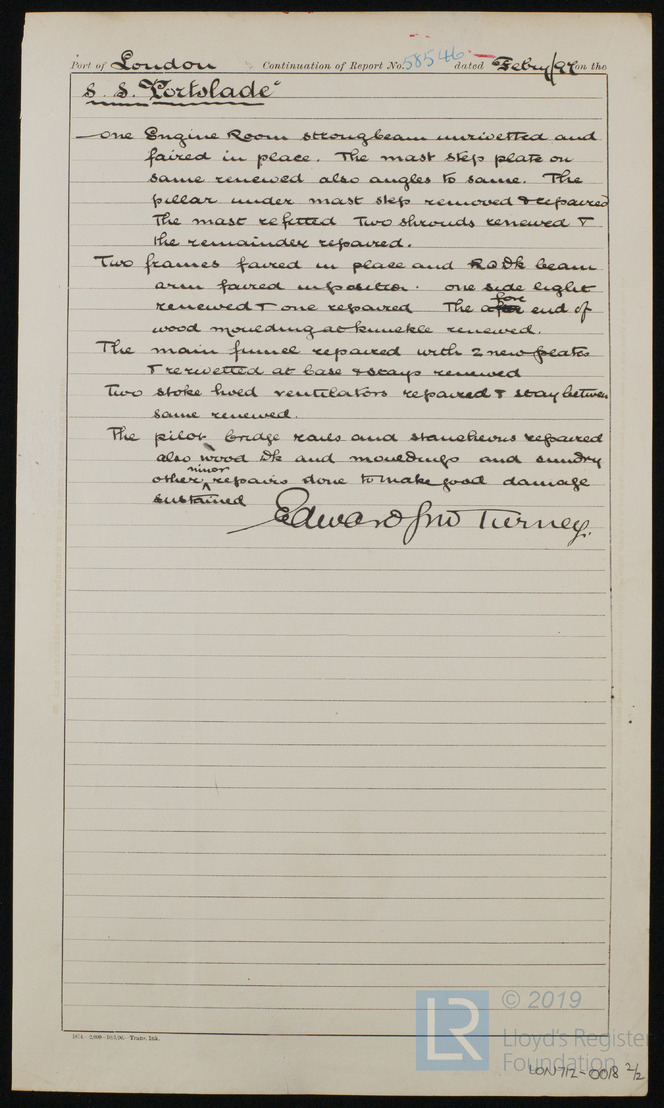 Port of London Continuation of Report No. 58546 dated Febry/97 on the
S. S. "Portslade"
one Engine Room strongbeam unrivetted and
faired in place. The mast step plate on
same renewed also angles to same. The
pillar under mast step removed & repaired
The mast refitted Two shrouds renewed &
the remainder repaired.
Two frames faired in place and RQDk beam
arm faired in position. one side light
renewed & one repaired The fore end of
wood moulding at knuckle renewed.
The main funnel repaired with 2 new plates
& rerivetted at base & stays renewed
Two stoke hold ventilators repaired & stay between
same renewed.
The pilot bridge rails and stancheons repaired
also wood Dk and mouldings and sundry
other minor repairs done to make good damage
sustained
Edward Jno Tierney.
© 2019
Lloyd's Register
Foundation
LON712-0018 2/2